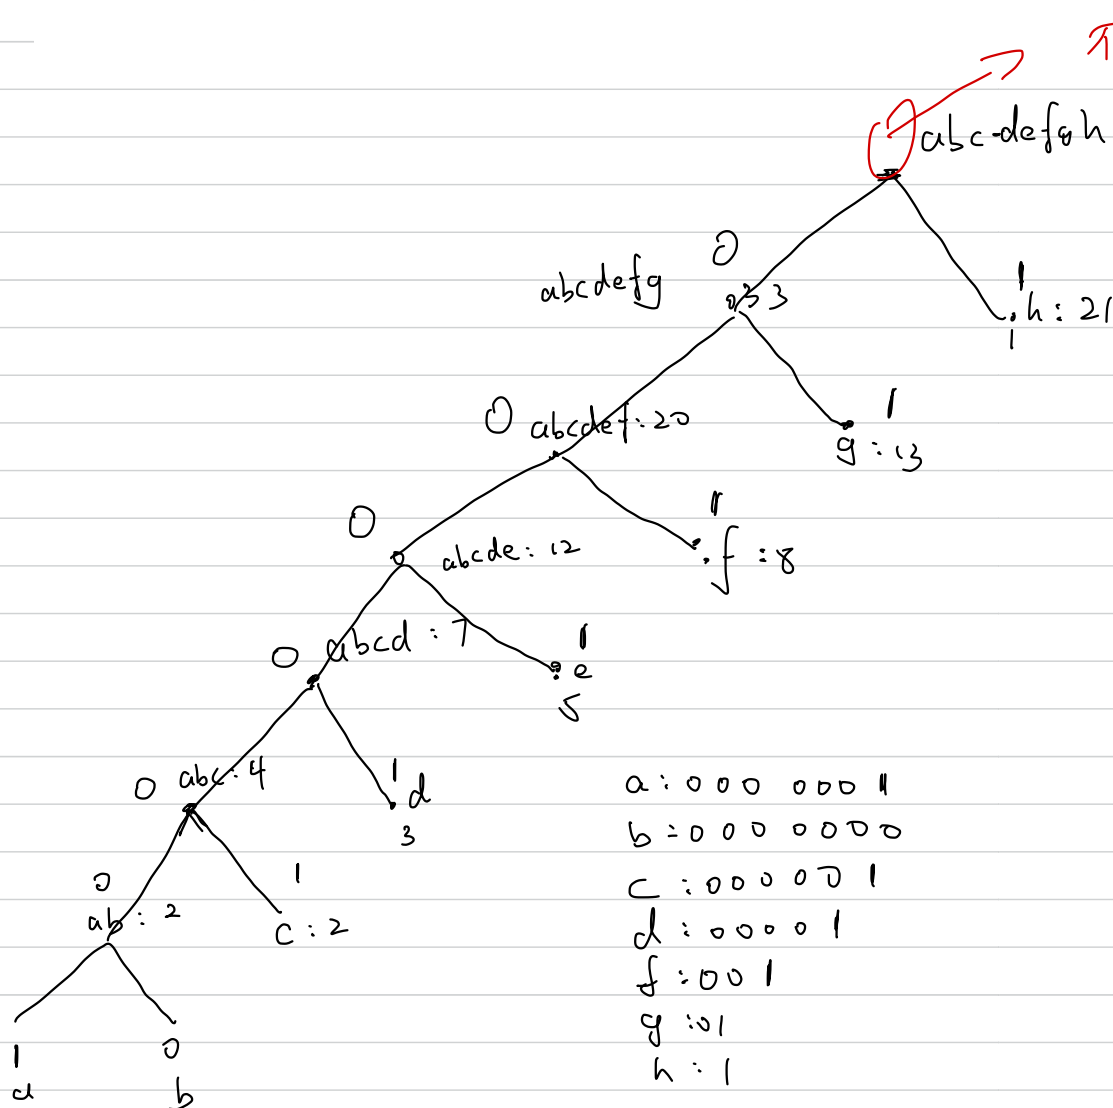 abcdefgh
0
1
abcdefg
33
h: 21
1
0
abcdef: 20
1
g: 13
0
abcde: 12
1
f: 8
0
abcd: 7
1
e
5
0
abc: 4
1
d
3
0
ab: 2
1
c: 2
1
a
0
b
a: 000 0001
b: 000 0000
c: 000001
d: 00001
f: 001
g: 01
h: 1